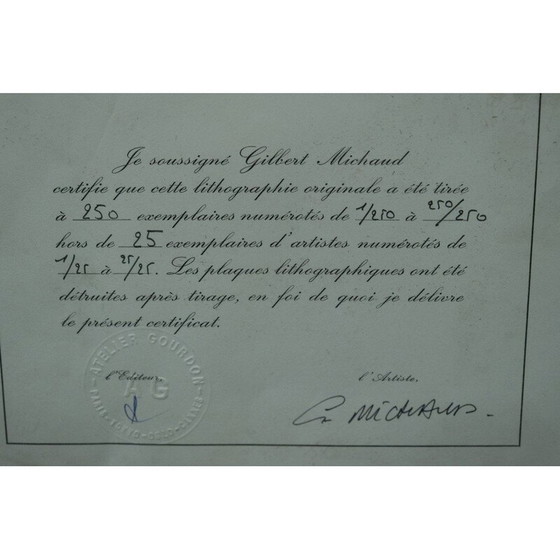 Je soussigné Gilbert Michaud
certifie que cette lithographie originale a été tirée
à 250 exemplaires numérotés de 1/250 à 250/250
hors de 25 exemplaires d'artistes numérotés de
1/25 à 25/25. Les plaques lithographiques ont été
détruites après tirage, en foi de quoi je délivre
le présent certificat.
l'Editeur. l'Artiste.
ATELIER GOURDON
AG
G. MICHAUD.